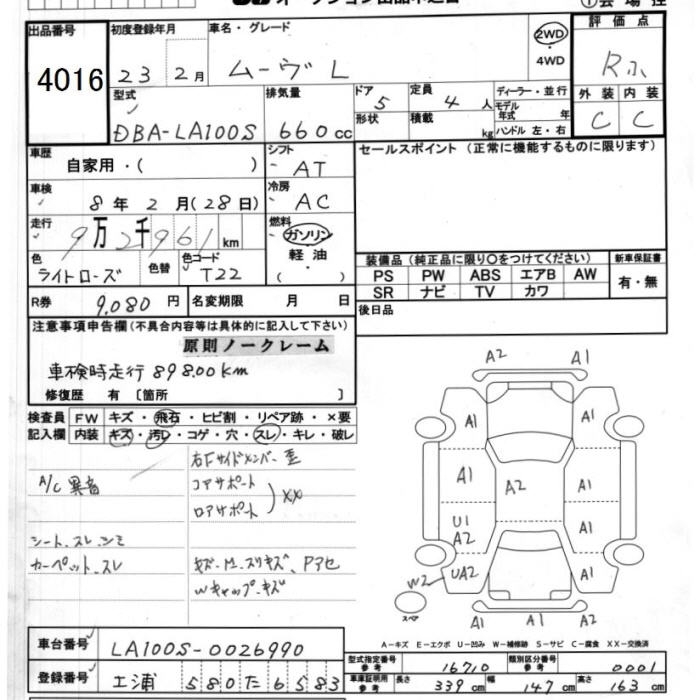 オークション出品申込書
出品番号 4016
初度登録年月 23 2月
車名・グレード ムーヴ L
2WD・4WD
評価点 Rふ
型式 DBA-LA100S
排気量 660cc
ドア 5
形状
定員 4人
積載 kg
ディーラー・並行
モデル年式 年
ハンドル 左・右
外装 C
内装 C
車歴 自家用・( )
シフト AT
セールスポイント (正常に機能するものに限ります)
車検 8年 2月(28日)
冷房 AC
走行 9万2千961km
燃料 ガソリン 軽油 ( )
色 ライトローズ
色替
色コード T22
装備品 (純正品に限り○をつけてください)
新車保証書 有・無
PS PW ABS エアB AW
SR ナビ TV カワ
R券 9,080円
名変期限 月 日
後日品
注意事項申告欄(不具合内容等は具体的に記入して下さい)
原則ノークレーム
車検時走行 89800km
修復歴 有 〔箇所 〕
検査員記入欄
FW キズ・飛石・ヒビ割・リペア跡・×要
内装 キズ・汚レ・コゲ・穴・スレ・キレ・破レ
右Fサイドメンバー歪
A/C異音
コアサポート
ロアサポート
XX
シート、スレ、シミ
カーペット、スレ
キズ・M、スリキズ、Pアセ
Wキャップ、キズ
A2 A1
A1 A1
A1 A2 A1
U1 A2 A1
W2 UA2 A1
スペア
A1 A2 A1
A－キズ E－エクボ U－凹み W－補修跡 S－サビ C－腐食 XX－交換済
車台番号 LA100S-0026990
登録番号 580た6583
型式指定番号 参考 16710
類別区分番号 参考 0001
車庫証明用 参考 長さ 339cm 幅 147cm 高さ 163cm